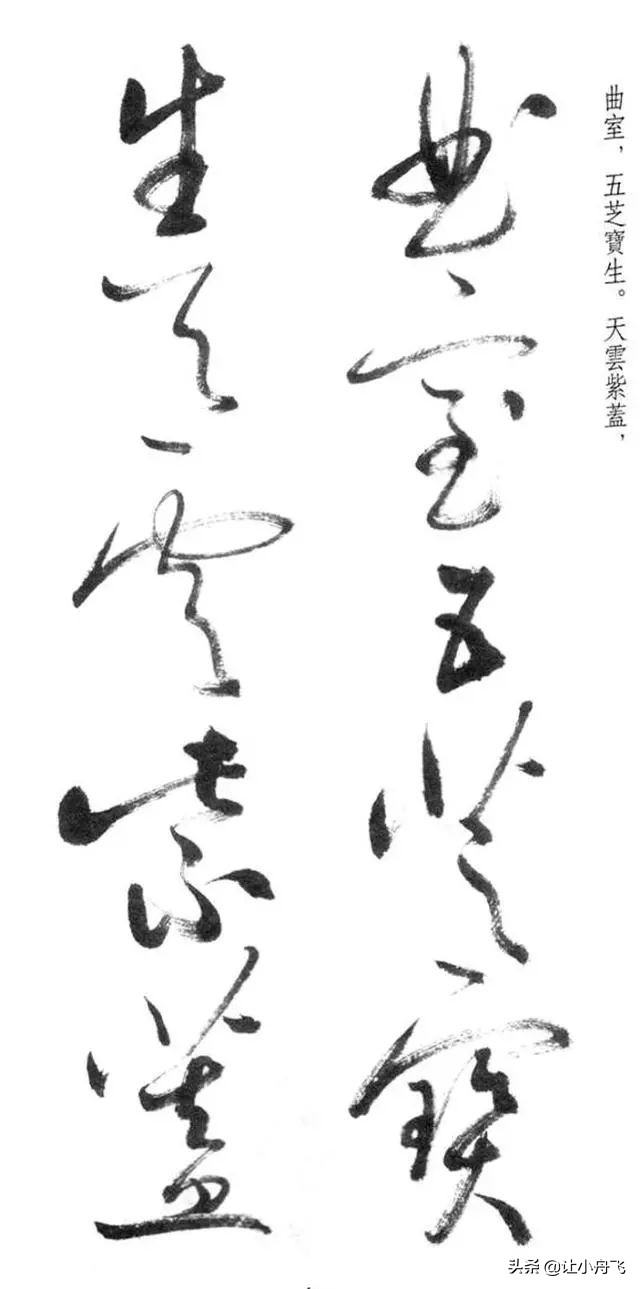 曲室，五芝寶生。天雲紫蓋，
曲室五芝寶
生天雲紫蓋
头条 @让小舟飞